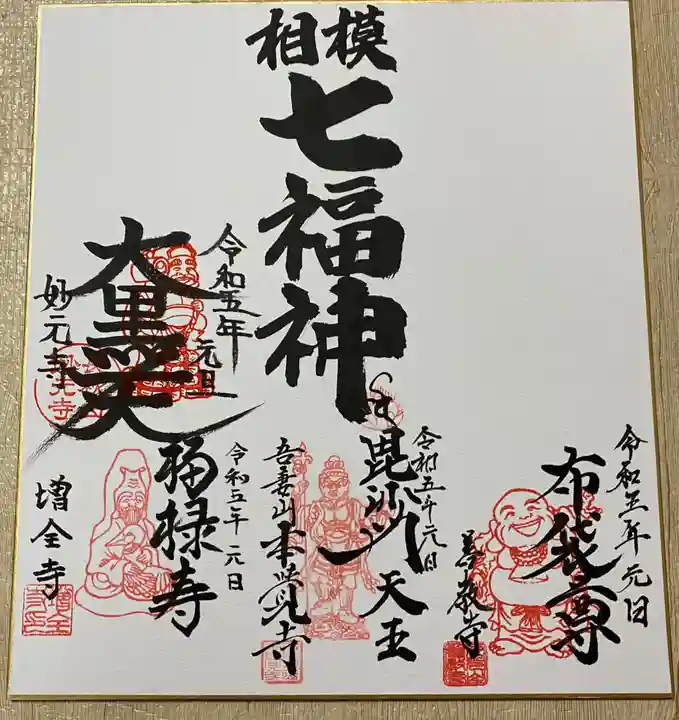 相模
七福神
令和五年元旦
大黒天
妙元寺
令和五年元日
布袋尊
善教寺
令和五年元日
毘沙門天王
吾妻山本覺寺
令和五年元日
福禄寿
増全寺